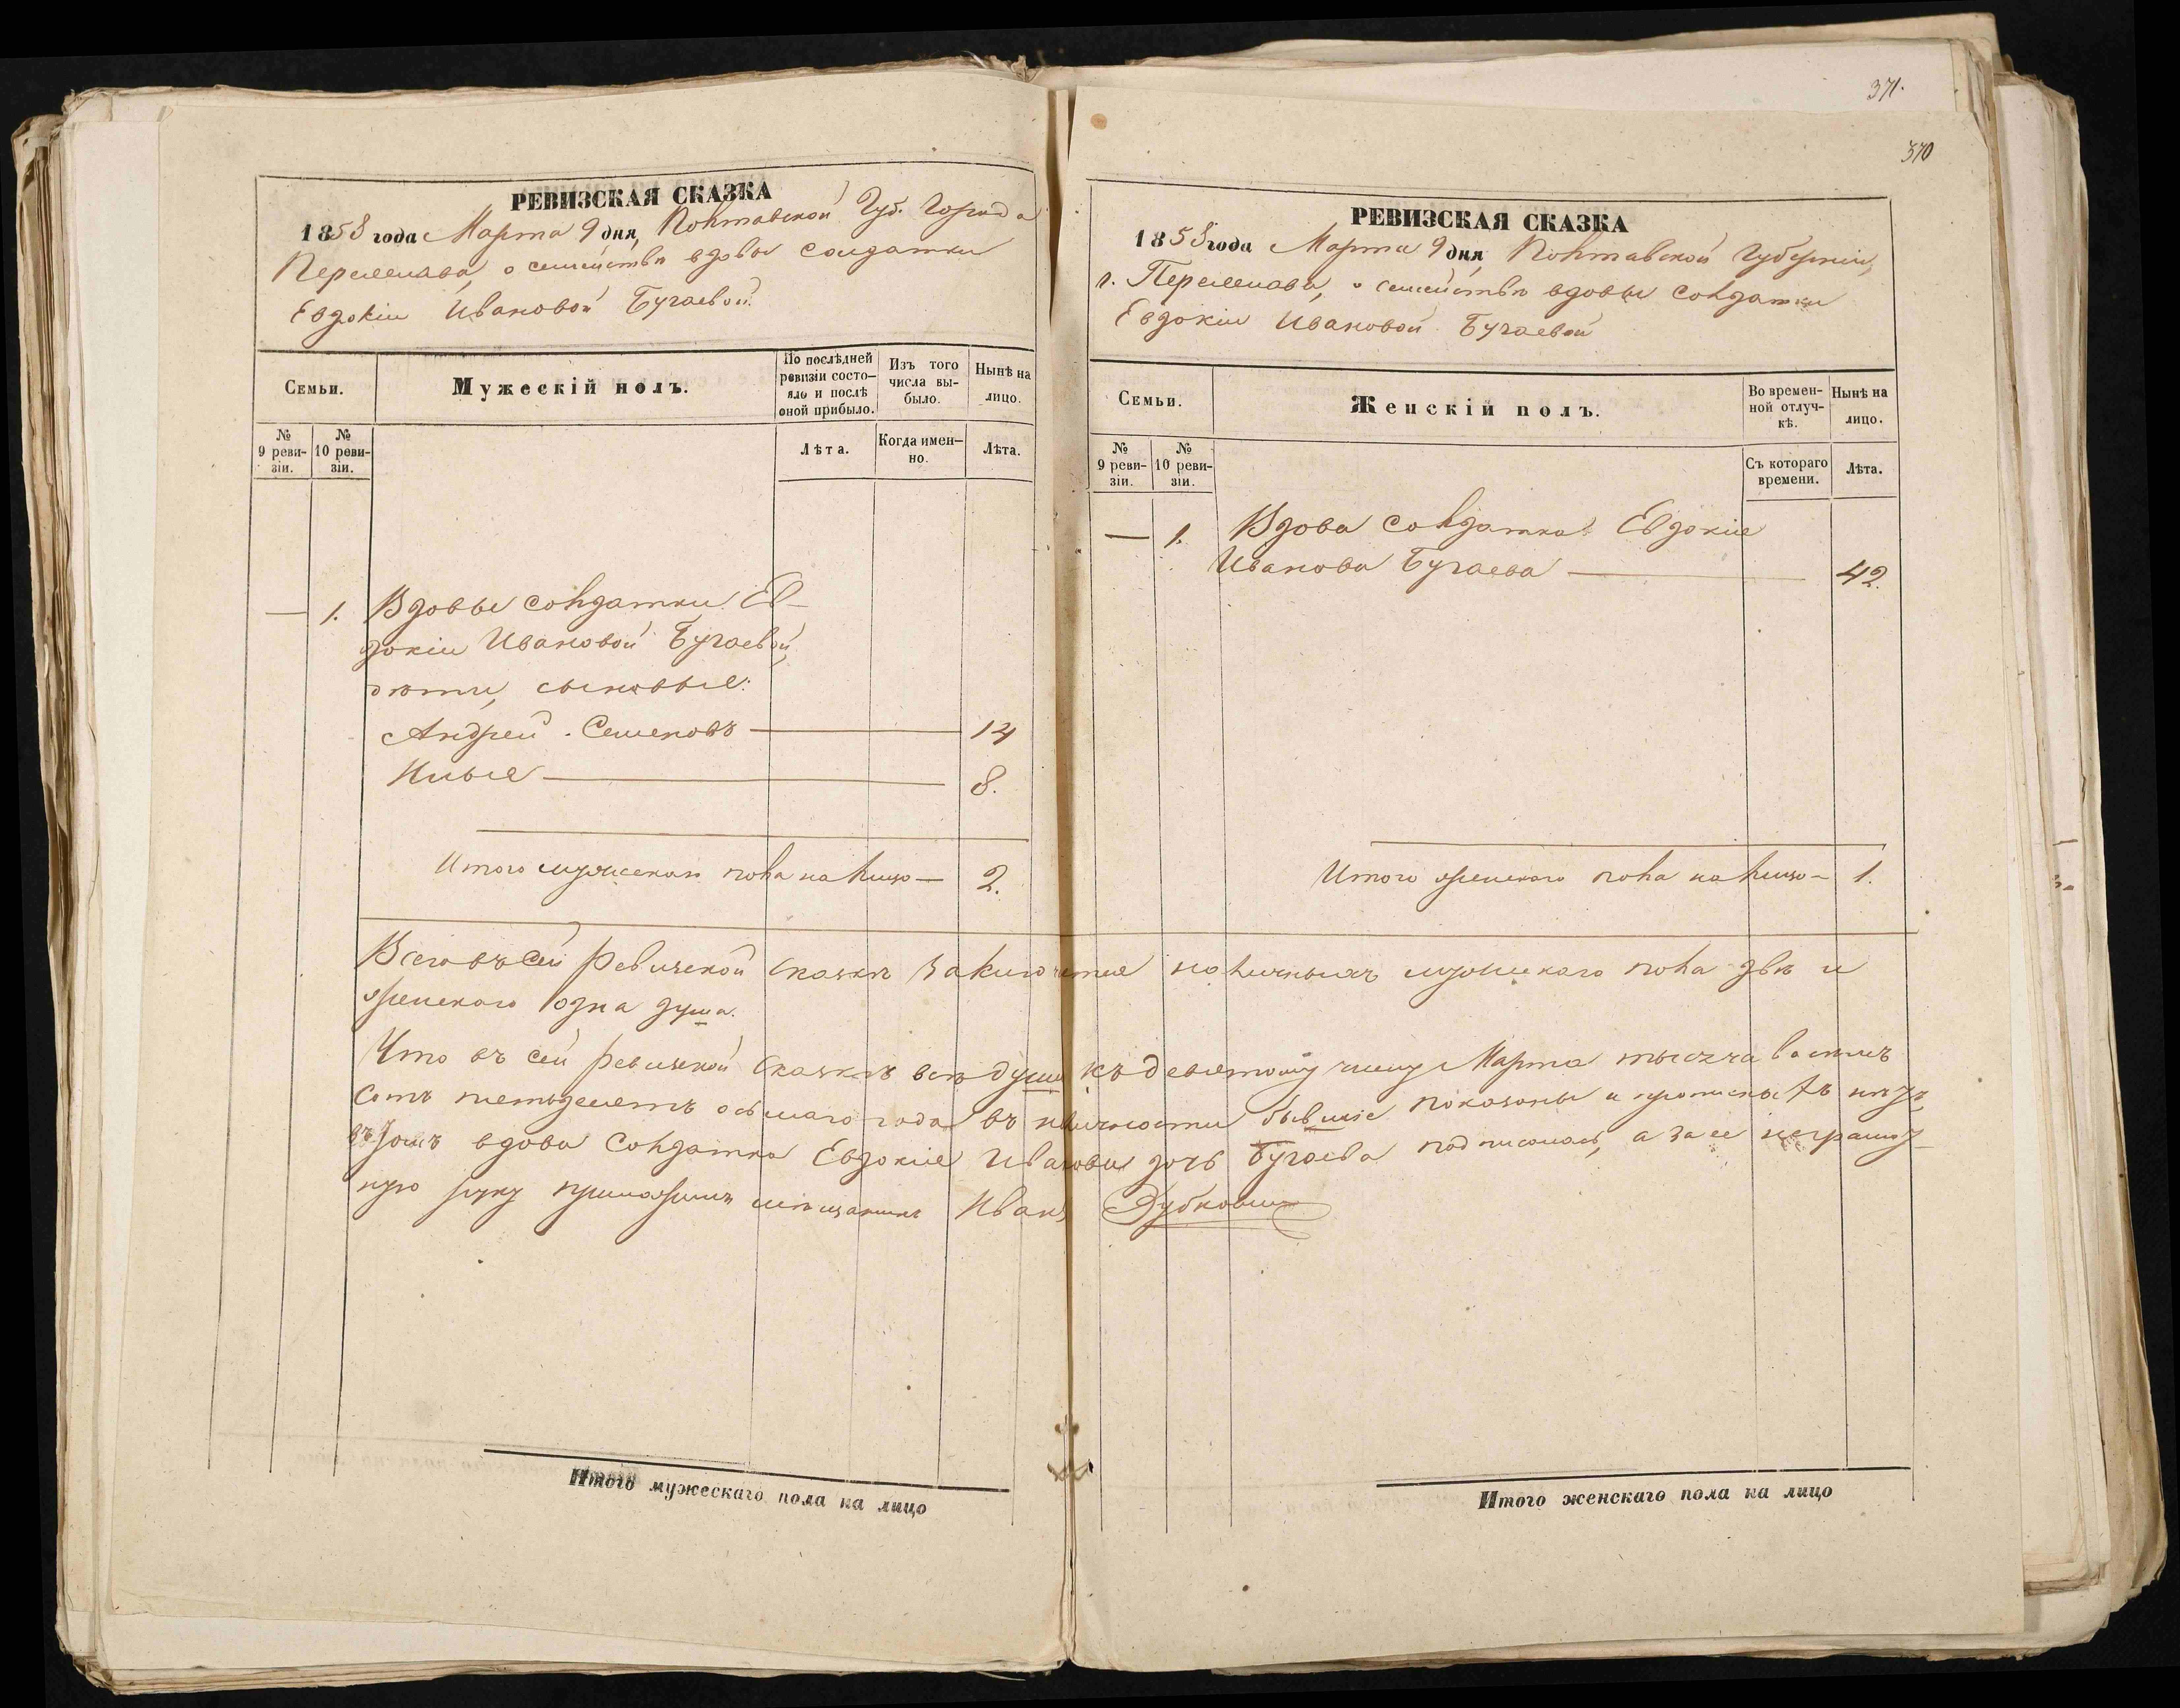 371.
370
РЕВИЗСКАЯ СКАЗКА
1858 года Марта 9 дня, Полтавской Губ. Города
Переяслава, о семействѣ вдовы солдатки
Евдокіи Ивановой Бугаевой.
Семьи.
Мужескій полъ.
По послѣдней ревизіи состояло и послѣ оной прибыло.
Изъ того числа выбыло.
Нынѣ на лицо.
№ 9 ревизіи.
№ 10 ревизіи.
Лѣта.
Когда именно.
Лѣта.
— 1. Вдовы солдатки Ев-
докіи Ивановой Бугаевой,
дѣти, сыновья:
Андрей Семеновъ — 14
Илья — 8.
Итого мужескаго пола на лицо — 2.
РЕВИЗСКАЯ СКАЗКА
1858 года Марта 9 дня, Полтавской Губерніи,
г. Переяслава, о семействѣ вдовы солдатки
Евдокіи Ивановой Бугаевой
Семьи.
Женскій полъ.
Во временной отлучкѣ.
Нынѣ на лицо.
№ 9 ревизіи.
№ 10 ревизіи.
Съ котораго времени.
Лѣта.
— 1. Вдова солдатка Евдокія
Иванова Бугаева — 42.
Итого женскаго пола на лицо — 1.
Всего въ сей ревизской сказкѣ заключается наличныхъ мужескаго пола двѣ и
женскаго одна душа.
Что въ сей ревизской сказкѣ всѣ души къ девятому числу Марта тысяча восемь
сотъ пятьдесятъ осьмаго года въ наличности бывшіе показаны и прописныхъ нѣтъ,
въ томъ вдова солдатка Евдокія Иванова дочь Бугаева подписалась, а за ее неграмот-
ную руку приложилъ мѣщанинъ Иванъ
Итого мужескаго пола на лицо
Итого женскаго пола на лицо